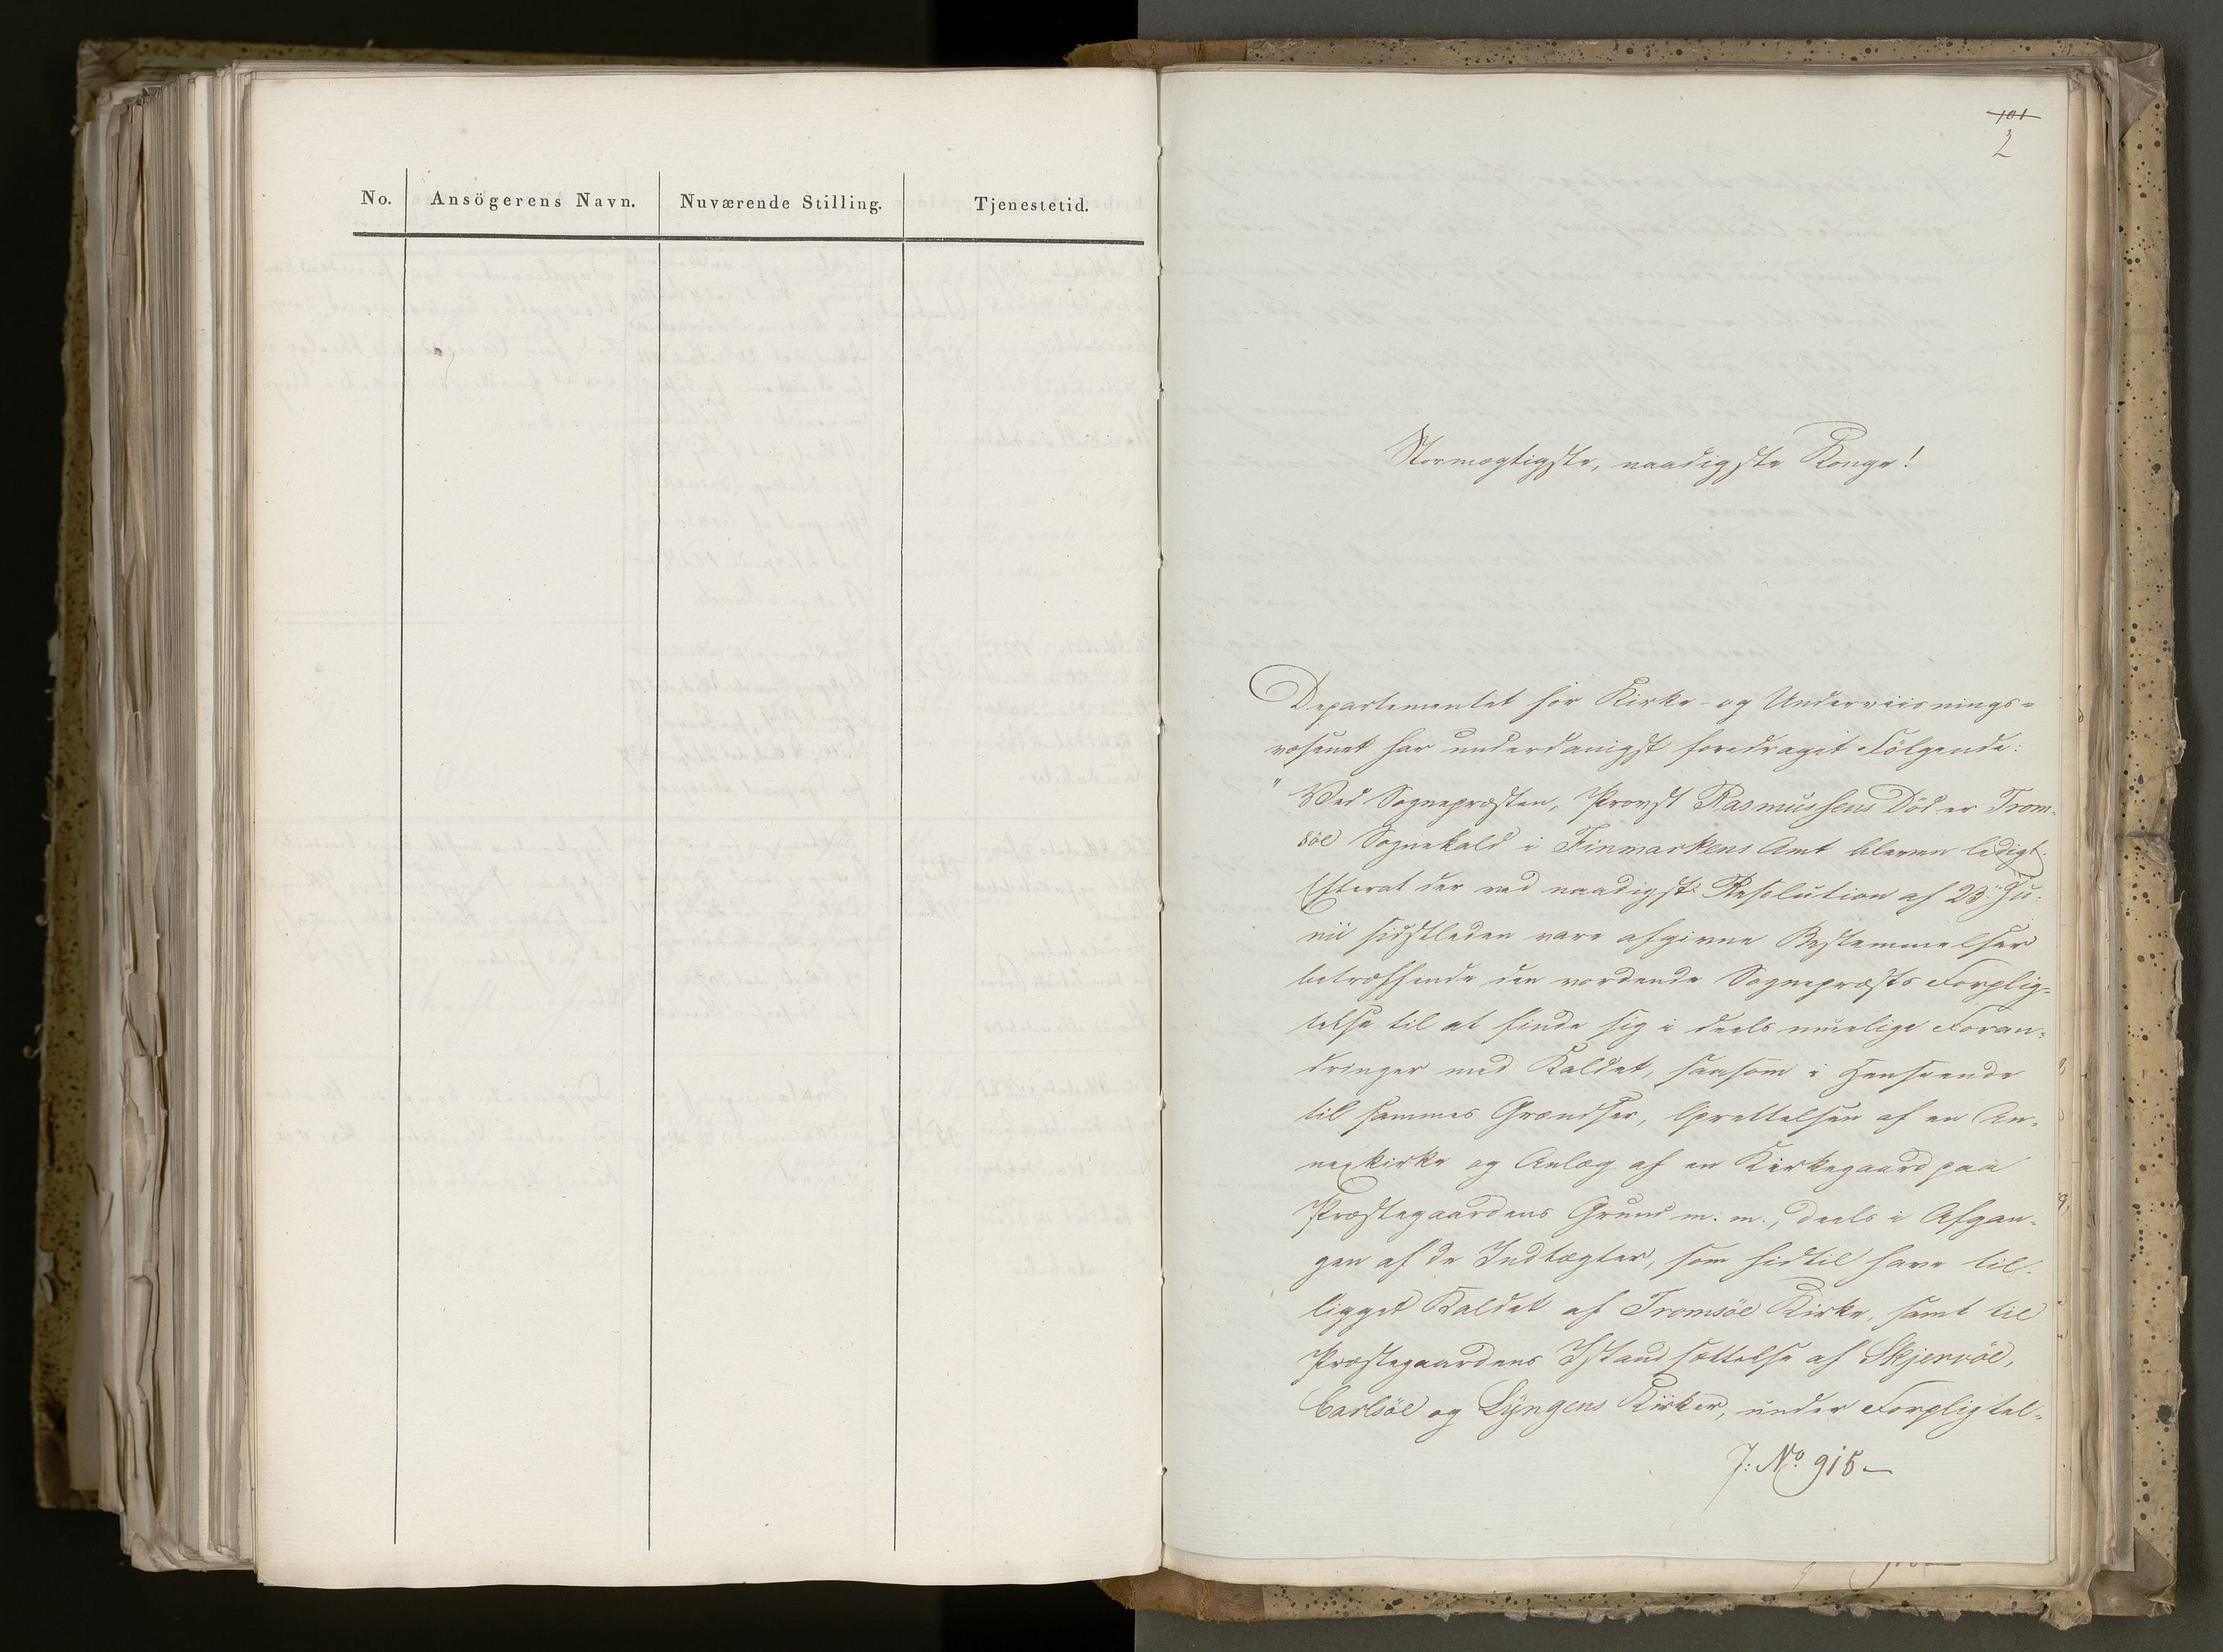 No. Ansögerens Navn. Nuværende Stilling. Tjenestetid.
101
2
Stormægtigste, naadigste Konge!
Departementet for Kirke- og Underviisnings-
væsenet har underdanigst foredraget Følgende:
" Ved Sognepræsten, Provst Rasmussens Död er Trom-
söe Sognekald i Finmarkens Amt bleven ledigt.
Efterat der ved naadigst Resolution af 23. Ju-
nii sidstleden vare afgivne Bestemmelser
betræffende den vordende Sognepræsts Forplig-
telse til at finde sig i deels muelige Foran-
dringer med Kaldet, saasom i Henseende
til sammes Grændser, Oprettelsen af en An-
nexkirke og Anlæg af en Kirkegaard paa
Præstegaardens Grund m. m., deels i Afgan-
gen af de Indtægter, som hidtil have til-
ligget Kaldet af Tromsöe Kirke, samt til
Præstegaardens Istandsættelse af Skjervöe,
Carlsöe og Lyngens Kirker, under Forpligtel-
J: No. 915 -